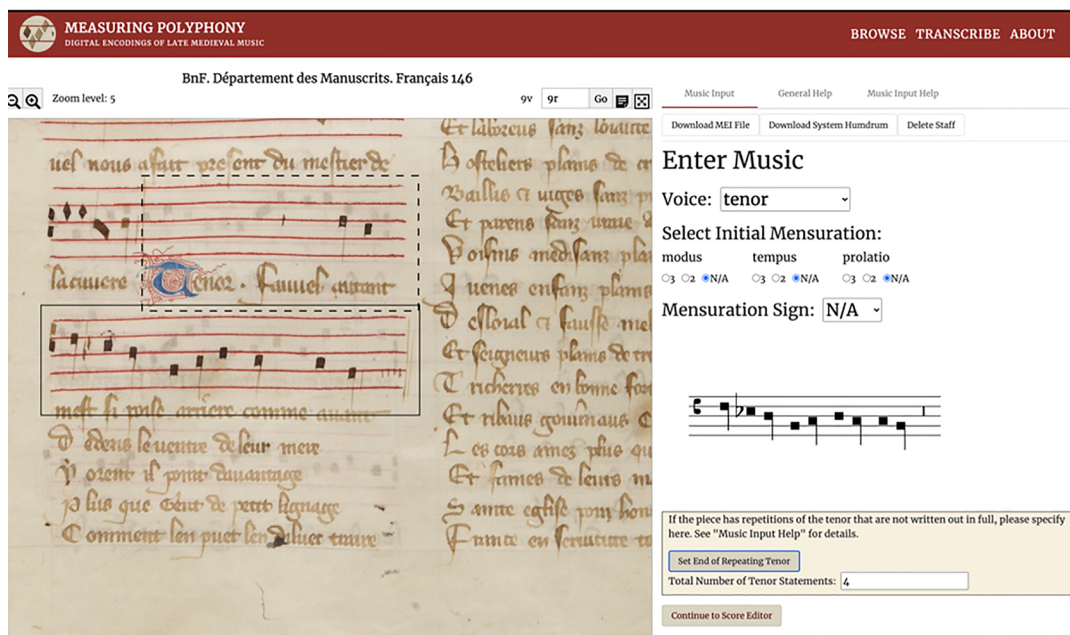 MEASURING POLYPHONY
DIGITAL ENCODINGS OF LATE MEDIEVAL MUSIC
BROWSE TRANSCRIBE ABOUT
BnF. Département des Manuscrits. Français 146
Zoom level: 5
9v 9r Go
uel nous a fait present du mestier de
lacuvere Tenor. Fauvel. autant
mest si poise arriere comme avant
D edens le ventre de leur mere
P orent il point davantage
P lus que
de petit lignage
C omment len puet len
Et laboreus sanz
H osteliers plains de
Et parens sanz
V oisins mesdisanz
I uenes enfanz plains
D esloial et fausse
Et seigneurs plains de
T richeries en bonne
Et
L es cors amez plus
Et fames de leurs
S ainte eglise
Music Input
General Help
Music Input Help
Download MEI File
Download System Humdrum
Delete Staff
Enter Music
Voice: tenor
Select Initial Mensuration:
modus tempus prolatio
3 2 N/A 3 2 N/A 3 2 N/A
Mensuration Sign: N/A
If the piece has repetitions of the tenor that are not written out in full, please specify
here. See "Music Input Help" for details.
Set End of Repeating Tenor
Total Number of Tenor Statements: 4
Continue to Score Editor